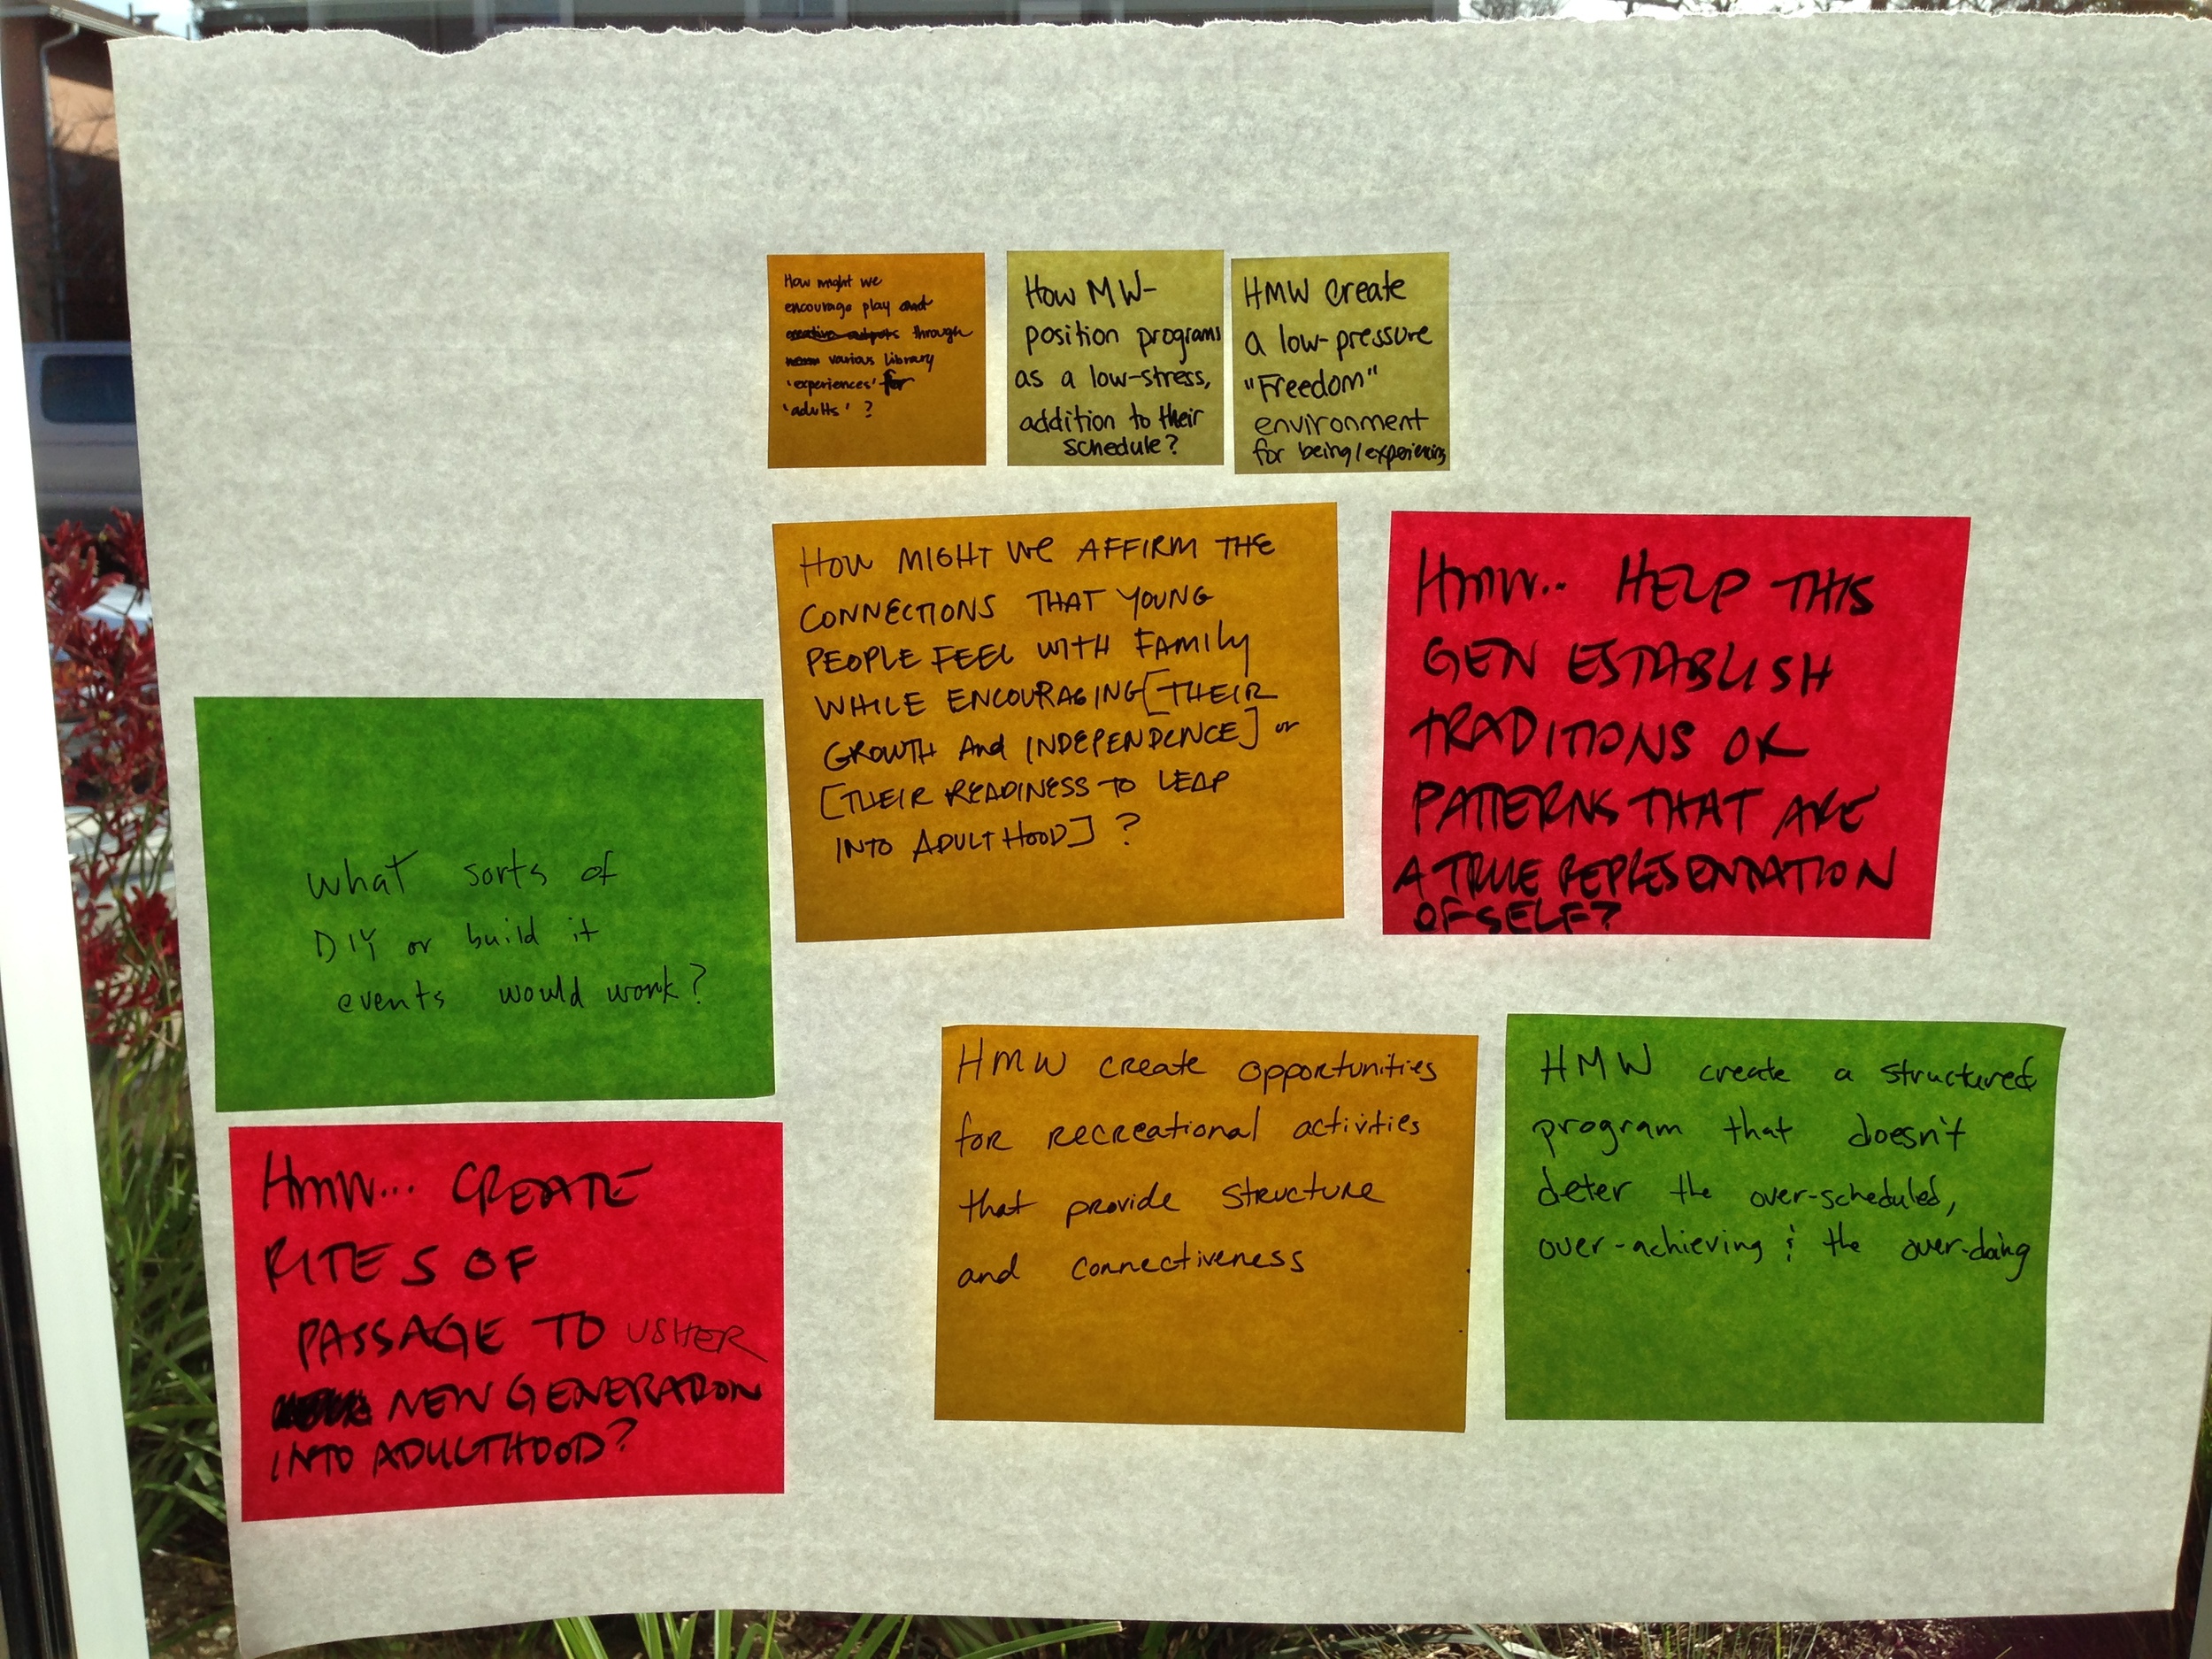 How might we
encourage play and
through
various library
'experiences' for
'adults' ?
How MW-
position programs
as a low-stress,
addition to their
schedule?
HMW create
a low-pressure
"Freedom"
environment
for being/experiencing
HOW MIGHT WE AFFIRM THE
CONNECTIONS THAT YOUNG
PEOPLE FEEL WITH FAMILY
WHILE ENCOURAGING [THEIR
GROWTH And INDEPENDENCE] or
[THEIR READINESS TO LEAP
INTO ADULTHOOD] ?
Hmw.. HELP THIS
GEN ESTABLISH
TRADITIONS OR
PATTERNS THAT ARE
A TRUE REPRESENTATION
OF SELF?
What sorts of
DIY or build it
events would work?
Hmw... CREATE
RITES OF
PASSAGE TO USHER
NEW GENERATION
INTO ADULTHOOD?
HMW create opportunities
for recreational activities
that provide structure
and connectiveness
HMW create a structured
program that doesn't
deter the over-scheduled,
over-achieving & the over-doing